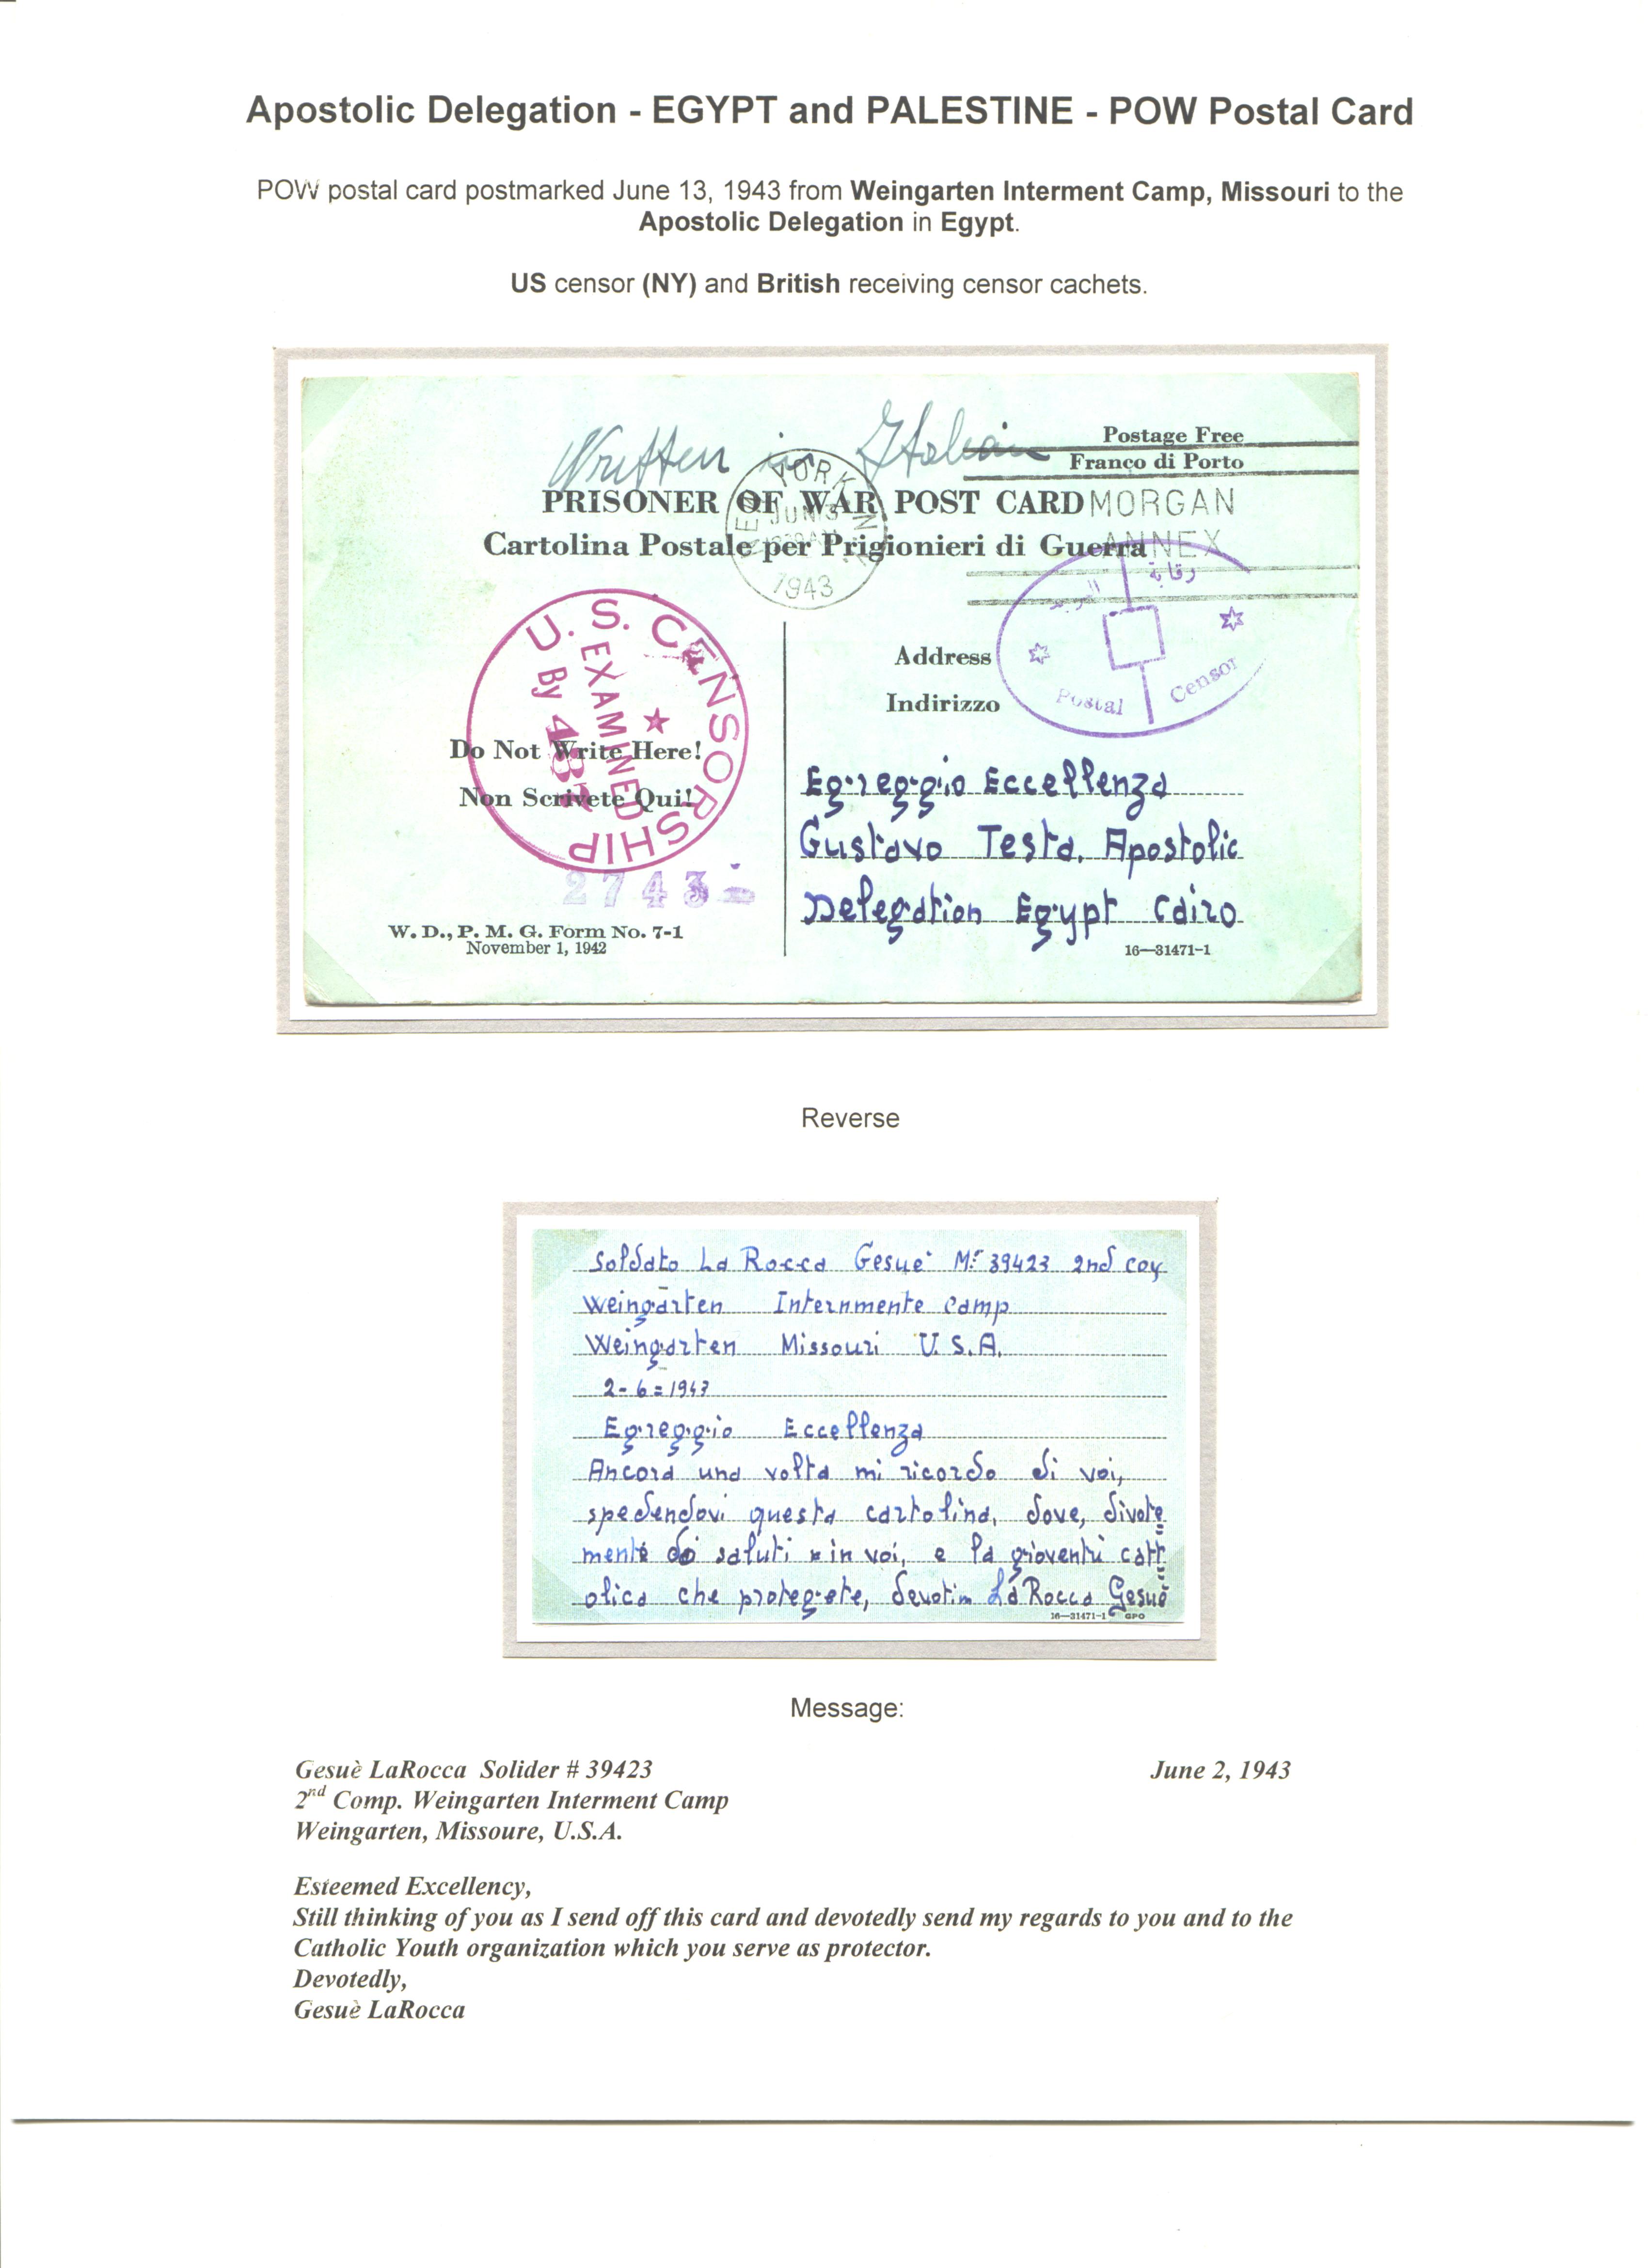 Apostolic Delegation - EGYPT and PALESTINE - POW Postal Card
POW postal card postmarked June 13, 1943 from Weingarten Interment Camp, Missouri to the
Apostolic Delegation in Egypt.
US censor (NY) and British receiving censor cachets.
Written in Italian
Postage Free
Franco di Porto
PRISONER OF WAR POST CARD
MORGAN
ANNEX
NEW YORK N.Y.
JUN 13
1943
Cartolina Postale per Prigionieri di Guerra
رقابة
البريد
Postal Censor
U. S. CENSORSHIP
EXAMINED
By
Address
Indirizzo
Do Not Write Here!
Non Scrivete Qui!
Egreggio Eccellenza
Gustavo Testa. Apostolic
Delegation Egypt Cairo
2743
W. D., P. M. G. Form No. 7-1
November 1, 1942
16—31471-1
Reverse
Soldato La Rocca Gesue' Mr 39423 2nd Coy
Weingarten Internmente Camp
Weingarten Missouri U.S.A.
2-6=1943
Egreggio Eccellenza
Ancora una volta mi ricordo di voi,
spedendovi questa cartolina, dove, divote=
mente do saluti in voi, e la gioventù catt=
olica che protegete, devotim La Rocca Gesuè
16—31471-1 GPO
Message:
Gesuè LaRocca Solider # 39423 June 2, 1943
2nd Comp. Weingarten Interment Camp
Weingarten, Missoure, U.S.A.
Esteemed Excellency,
Still thinking of you as I send off this card and devotedly send my regards to you and to the
Catholic Youth organization which you serve as protector.
Devotedly,
Gesuè LaRocca